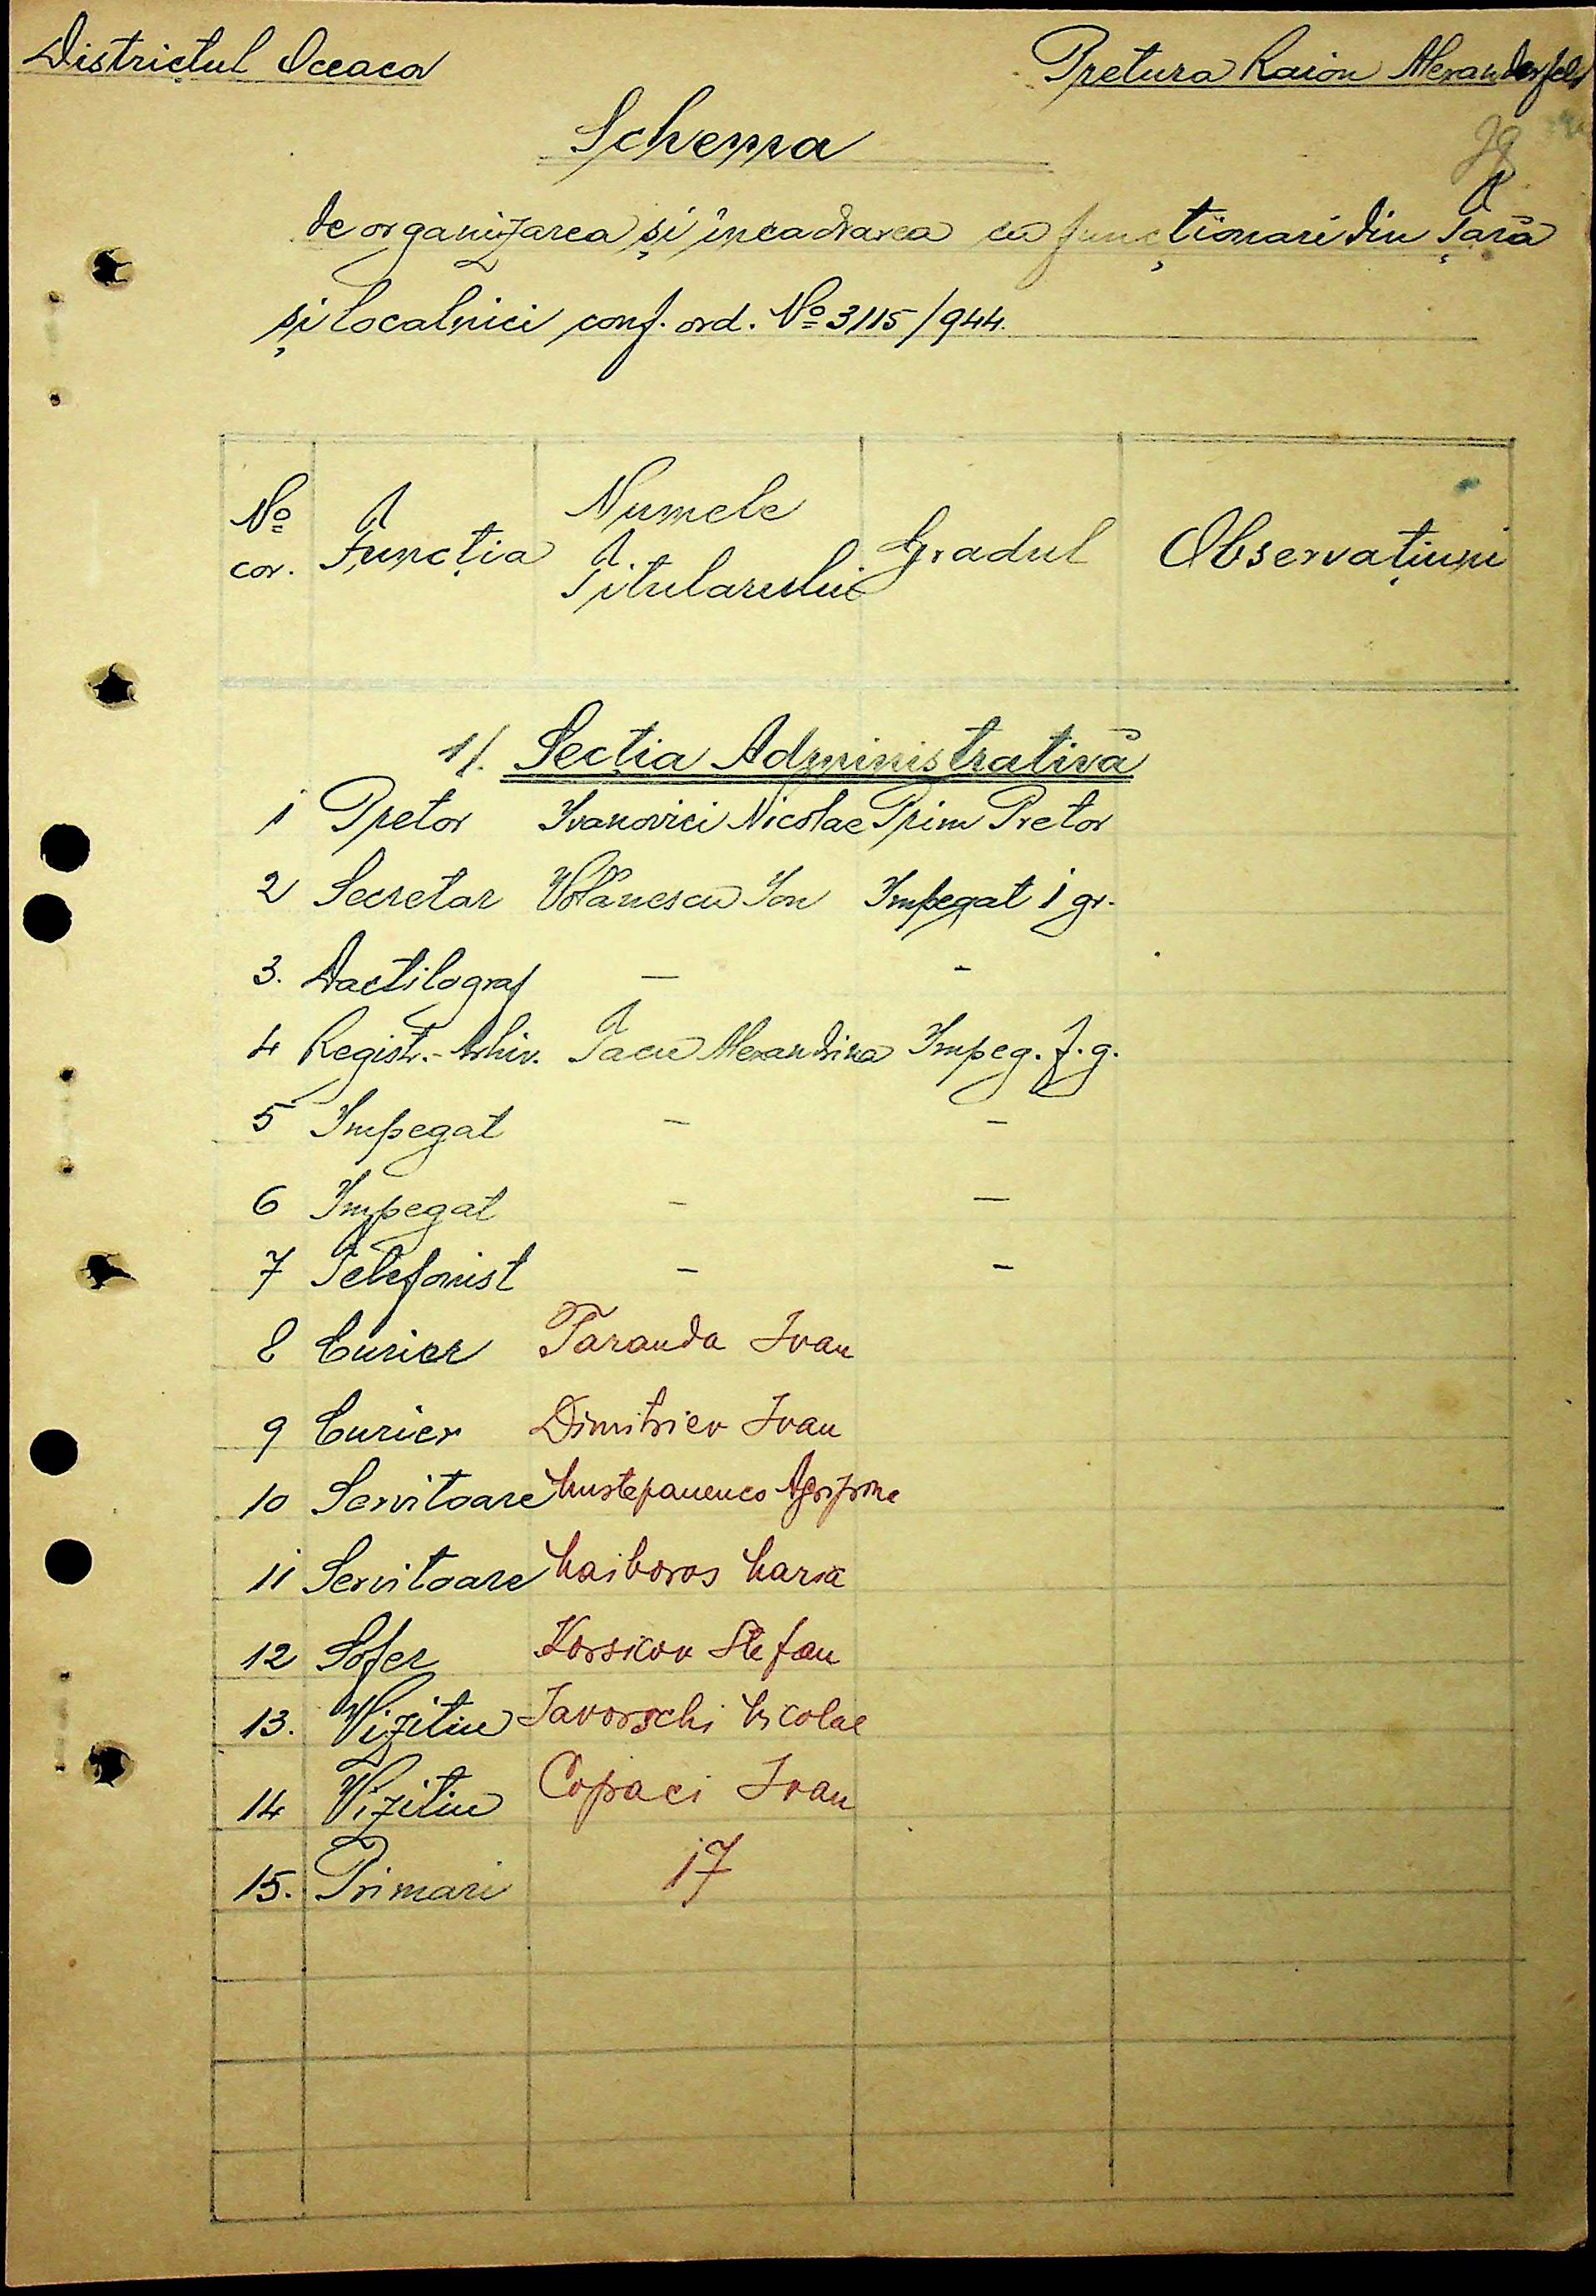 Districtul Oceacov
Pretura Raion Alexanderfeld
Schema
de organizarea și încadrarea cu funcționari din Țară
și localnici conf. ord. No 3115/944.
No cor. Funcția Numele Titularului Gradul Observațiuni
1/. Secția Administrativă
1 Pretor Ivanovici Nicolae Prim Pretor
2 Secretar Ion Impegat 1 gr.
3. Dactilograf — -
4 Regist.-Arhiv. Tacu Alexandrina Impeg. f.g.
5 Impegat - -
6 Impegat - —
7 Telefonist - -
8 Curier Taranda Ivan
9 Curier Dimitriev Ivan
10 Servitoare
11 Servitoare Maria
12 Sofer Korsicov Stefan
13. Vizitiu Iavorschi Nicolae
14 Vizitiu Copaci Ivan
15. Primari 17